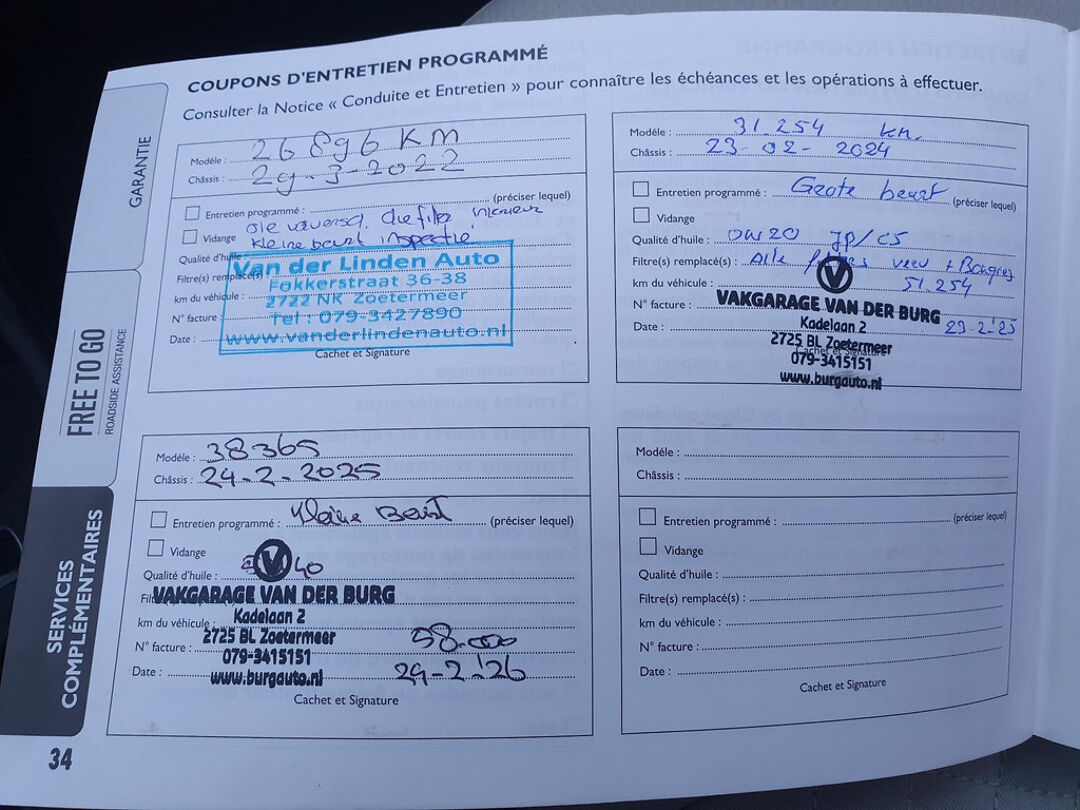 COUPONS D'ENTRETIEN PROGRAMMÉ
Consulter la Notice « Conduite et Entretien » pour connaître les échéances et les opérations à effectuer.
GARANTIE
FREE TO GO
ROADSIDE ASSISTANCE
SERVICES
COMPLÉMENTAIRES
Modèle : 26896 KM
Châssis : 29-3-2022
Entretien programmé : (préciser lequel)
olie ververst, interieur
Vidange kleine beurt inspectie
Qualité d'huile
Filtre(s) remplacé(s) :
km du véhicule :
N° facture
Date :
Van der Linden Auto
Fokkerstraat 36-38
2722 NK Zoetermeer
Tel : 079-3427890
www.vanderlindenauto.nl
Cachet et Signature
Modèle : 31.254 km.
Châssis : 23-02-2024
Entretien programmé : Grote beurt (préciser lequel)
Vidange
Qualité d'huile : 0W20
Filtre(s) remplacé(s) : Alle + Bougies
km du véhicule : 51.254
N° facture :
Date : 23-2-'25
V
VAKGARAGE VAN DER BURG
Kadelaan 2
2725 BL Zoetermeer
Cachet et Signature
079-3415151
www.burgauto.nl
Modèle : 38365
Châssis : 24-2-2025
Entretien programmé : Kleine Beurt (préciser lequel)
Vidange
Qualité d'huile : 40
V
VAKGARAGE VAN DER BURG
km du véhicule : Kadelaan 2
2725 BL Zoetermeer
N° facture : 079-3415151 58.000
Date : www.burgauto.nl 24-2-'26
Cachet et Signature
Modèle :
Châssis :
Entretien programmé : (préciser lequel)
Vidange
Qualité d'huile :
Filtre(s) remplacé(s) :
km du véhicule :
N° facture :
Date :
Cachet et Signature
34